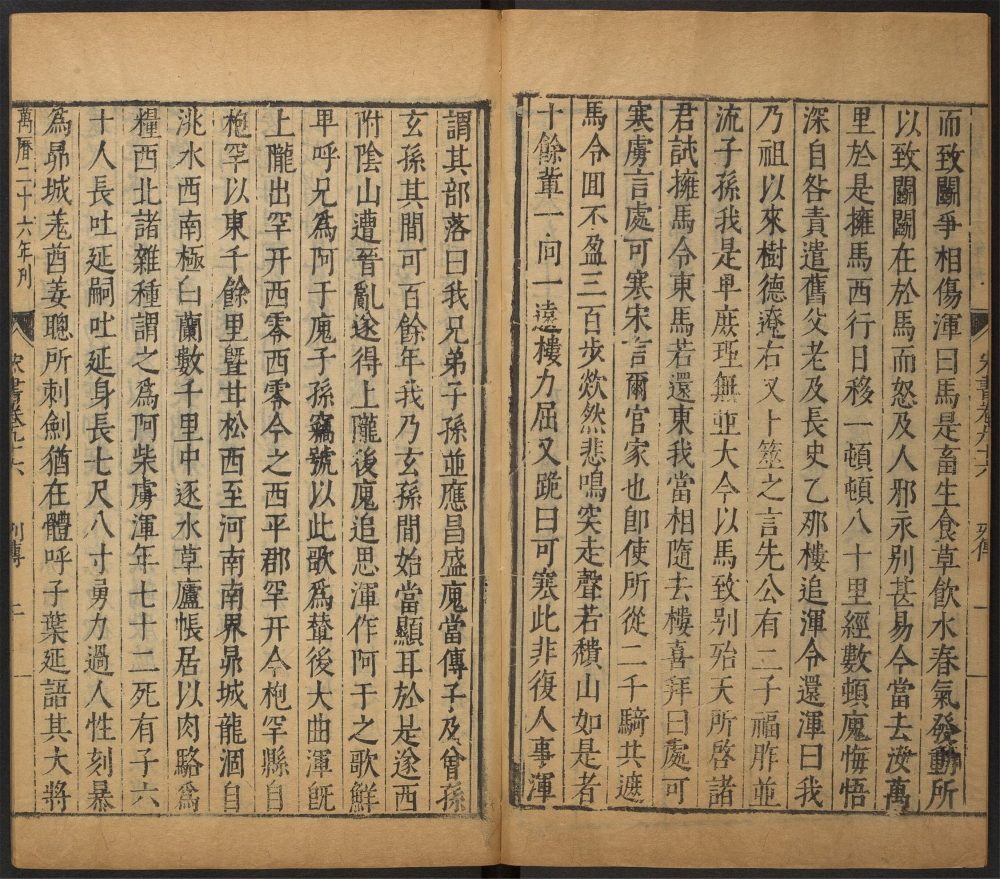 而致鬬爭相傷渾曰馬是畜生食草飲水春氣發動所
以致鬬鬬在於馬而怒及人邪永別甚易今當去汝萬
里於是擁馬西行日移一頓頓八十里經數頓廆悔悟
深自咎責遣舊父老及長史乙那樓追渾令還渾曰我
乃祖以來樹德遼右又卜筮之言先公有二子福胙並
流子孫我是卑庶理無並大今以馬致別殆天所啓諸
君試擁馬令東馬若還東我當相隨去樓喜拜曰處可
寒虜言處可寒宋言爾官家也卽使所從二千騎共遮
馬令囬不盈三百步歘然悲鳴突走聲若穨山如是者
十餘輩一向一遠樓力屈又跪曰可寒此非復人事渾
宋書卷九十六 列傳
謂其部落曰我兄弟子孫並應昌盛廆當傳子及曾孫
玄孫其間可百餘年我乃玄孫間始當顯耳於是遂西
附陰山遭晉亂遂得上隴後廆追思渾作阿干之歌鮮
卑呼兄爲阿干廆子孫竊號以此歌爲輦後大曲渾旣
上隴出罕开西零西零今之西平郡罕开今枹罕縣自
枹罕以東千餘里曁甘松西至河南南界昴城龍涸自
洮水西南極白蘭數千里中逐水草廬帳居以肉酪爲
糧西北諸雜種謂之爲阿柴虜渾年七十二死有子六
十人長吐延嗣吐延身長七尺八寸勇力過人性刻暴
爲昴城羌酋姜聰所刺劍猶在體呼子葉延語其大將
萬曆二十六年刊
宋書卷九十六 列傳